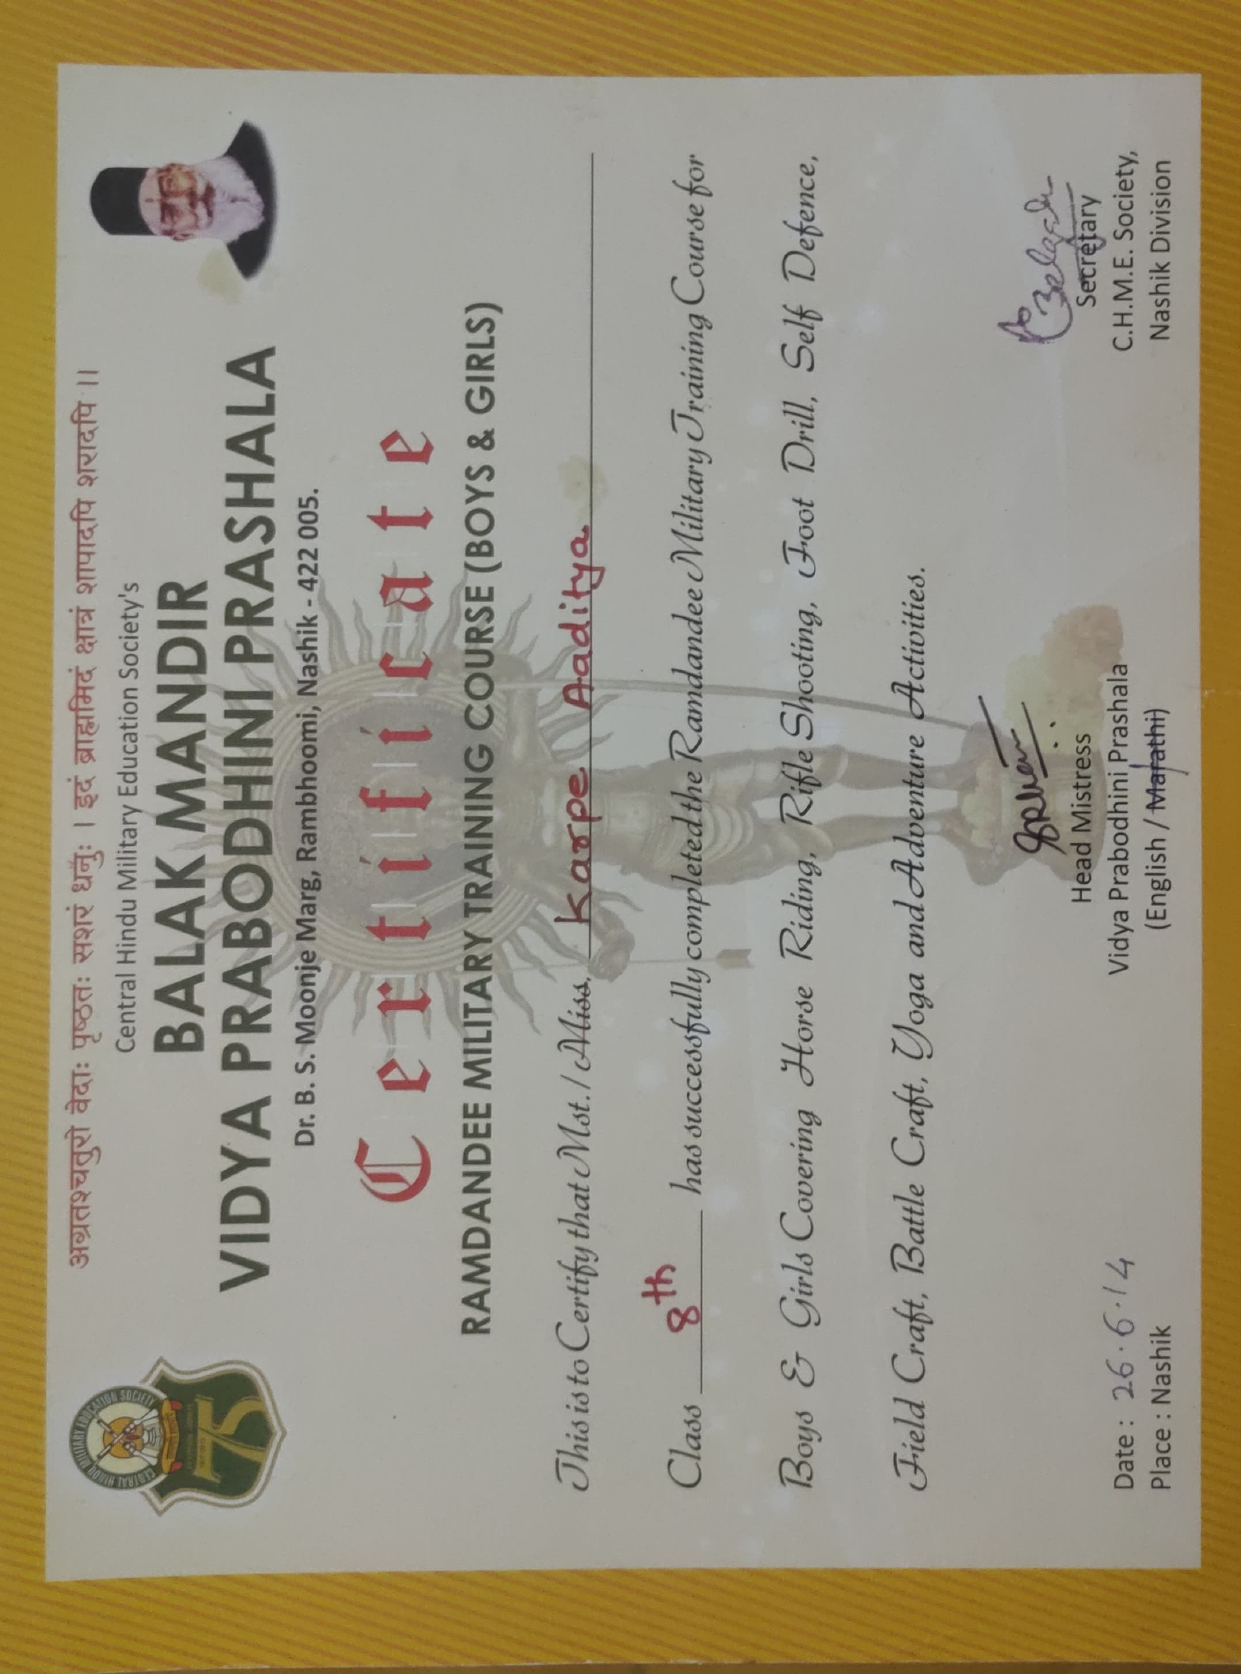 अग्रतश्चतुरो वेदाः पृष्ठतः सशरं धनुः । इदं ब्राह्ममिदं क्षात्रं शापादपि शरादपि ।।
Central Hindu Military Education Society's
BALAK MANDIR
VIDYA PRABODHINI PRASHALA
Dr. B. S. Moonje Marg, Rambhoomi, Nashik - 422 005.
Certificate
RAMDANDEE MILITARY TRAINING COURSE (BOYS & GIRLS)
This is to Certify that Mst. / Miss. Karpe Aaditya
Class 8th has successfully completed the Ramdandee Military Training Course for
Boys & Girls Covering Horse Riding, Rifle Shooting, Foot Drill, Self Defence,
Field Craft, Battle Craft, Yoga and Adventure Activities.
Head Mistress
Vidya Prabodhini Prashala
(English / Marathi)
Secretary
C.H.M.E. Society,
Nashik Division
Date : 26.6.14
Place : Nashik
CENTRAL HINDU MILITARY EDUCATION SOCIETY
75